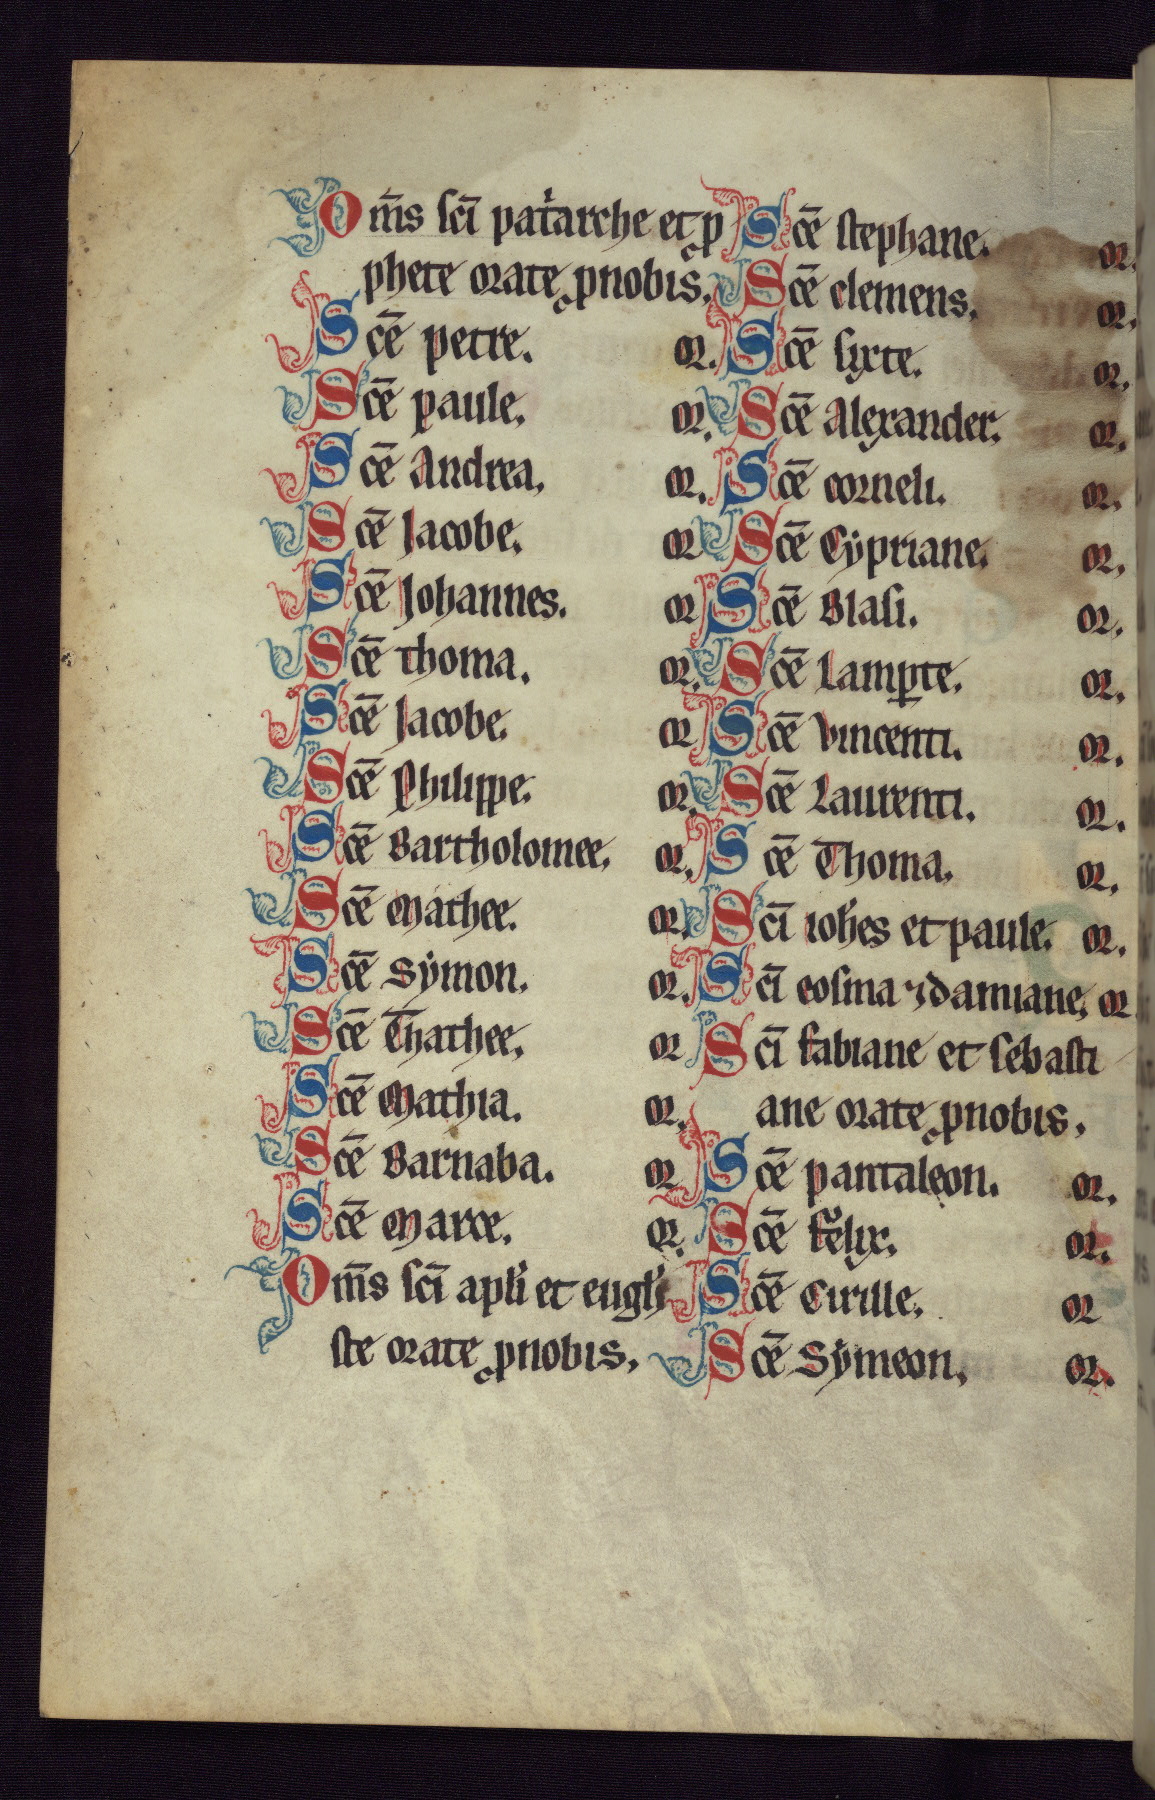 Om̄s sc̄i pat'arche et p
phete orate pnobis.
Sc̄e petre. or.
Sc̄e paule. or.
Sc̄e Andrea. or.
Sc̄e Jacobe. or
Sc̄e Johannes. or
Sc̄e thoma. or.
Sc̄e Jacobe. or
Sc̄e Philippe. or.
Sc̄e Bartholomee. or.
Sc̄e Mathee. or.
Sc̄e Symon. or.
Sc̄e Thathee. or
Sc̄e Mathia. or.
Sc̄e Barnaba. or
Sc̄e Marce. or.
Om̄s sc̄i apłi et eugłi
ste orate pnobis.
Sc̄e stephane. or.
Sc̄e clemens. or.
Sc̄e sixte. or.
Sc̄e Alexander. or.
Sc̄e corneli. or.
Sc̄e Cypriane. or.
Sc̄e Blasi. or.
Sc̄e Lamꝑte. or.
Sc̄e vincenti. or.
Sc̄e Laurenti. or.
Sc̄e Thoma. or.
Sc̄i ioh̄es et paule. or.
Sc̄i cosma ⁊ damiane. or
Sc̄i fabiane et sebasti
ane orate pnobis.
Sc̄e pantaleon. or.
Sc̄e felix. or.
Sc̄e Cirille. or
Sc̄e Symeon. or.